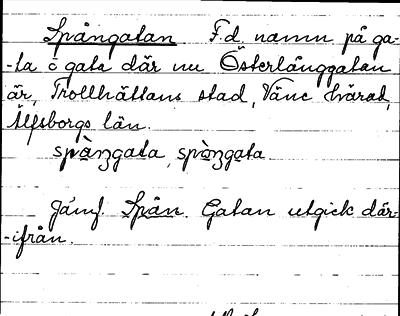 Spångatan F.d. namn på ga-
-ta o gata där nu Österlånggatan
är, Trollhättans stad, Väne härad,
Älfsborgs län.
spànᶎgata, spònᶎgata
Jämf. Spån. Gatan utgick där-
-ifrån.